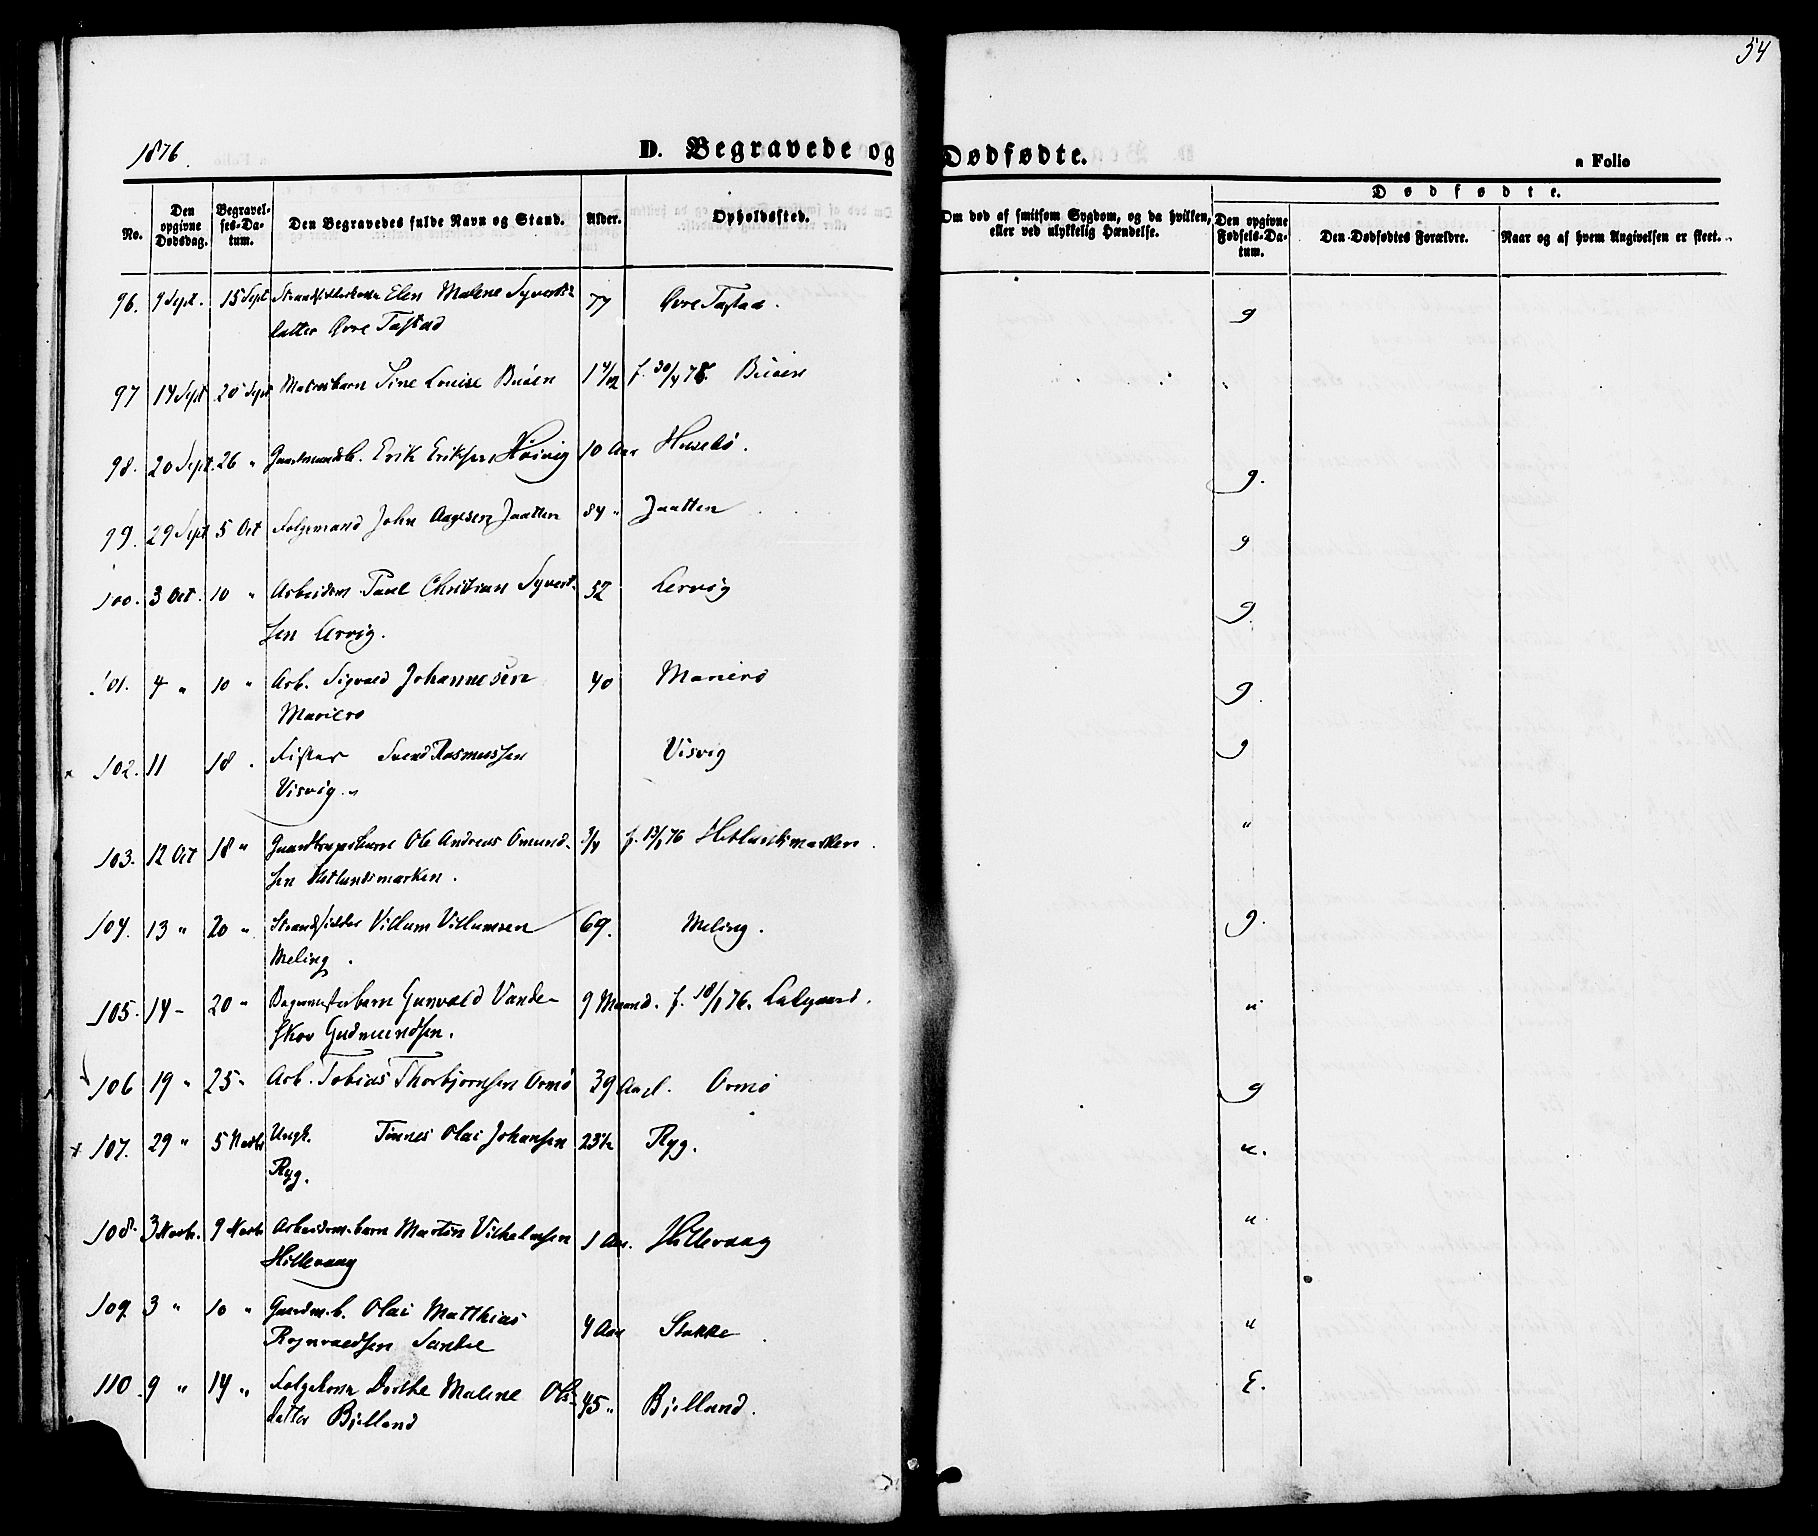 54
1876.
D. Begravede og Dødfødte.
a Folio
No.
Den opgivne Dødsdag.
Begravelses-Datum.
Den Begravedes fulde Navn og Stand.
Alder.
Opholdssted.
Om død af smitsom Sygdom, og da hvilken, eller ved ulykkelig Hændelse.
Dødfødte.
Den opgivne Fødsels-Datum.
Den Dødfødtes Forældre.
Naar og af hvem Angivelsen er skeet.
96. 9 Sept. 15 Sept Elen Malene Syverts- 77 Øvre Tastad. g
datter Øvre Tastad
97 14 Sept 20 Sept Sine Louise Buøen 1 4/12 f. 30/4 75. Buøen
98. 20 Sept. 26 " Gaardmandsb. Erik Eriksen Høivig 10 Aar Husebø. g.
99. 29 Sept 5 Oct Folgemand John Aagesen Jaatten 84 " Jaatten g
100. 3 Oct. 10 " Arbeidsm. Paul Christian Syvert- 52 Lervig g.
sen Lervig.
101. 4 " 10 " Arb. Sigvald Johannesen 40 Mariero g.
Mariero
102. 11 18 " Fisker Svend Rasmussen Visvig g
Visvig. "
103. 12 Oct 18 " Ole Andreas Omund- 3/4 f. 13/1 76 Hetlandsmarken. "
sen Hetlandsmarken.
104. 13 " 20 " Strandsidder Villum Villumsen 69. Meling. g.
Meling.
105. 14 - 20 " Gunvald Vande- 9 Maand. f. 18/1 76. Ladgaard. u
skov Gudmundsen.
106 19 " 25 " Arb. Tobias Thorbjørnsen Ormø 39 Ormø g
107. 29 " 5 Novbr Ungk. Tønnes Olai Johansen 23 1/2 Ryg. u.
Ryg.
108. 3 Novb. 9 Novb. Arbeidsm. barn Martin Vilhelmsen 1 Aar. Hillevaag u.
Hillevaag
109. 3 " 10 " Gaardm. b. Olai Matthias 4 Aar Stokke u
Rognvaldsen Sandal
110. 9 " 14 " Folgekone Dorthe Malene Ols- 45 " Bjelland. E.
datter Bjelland